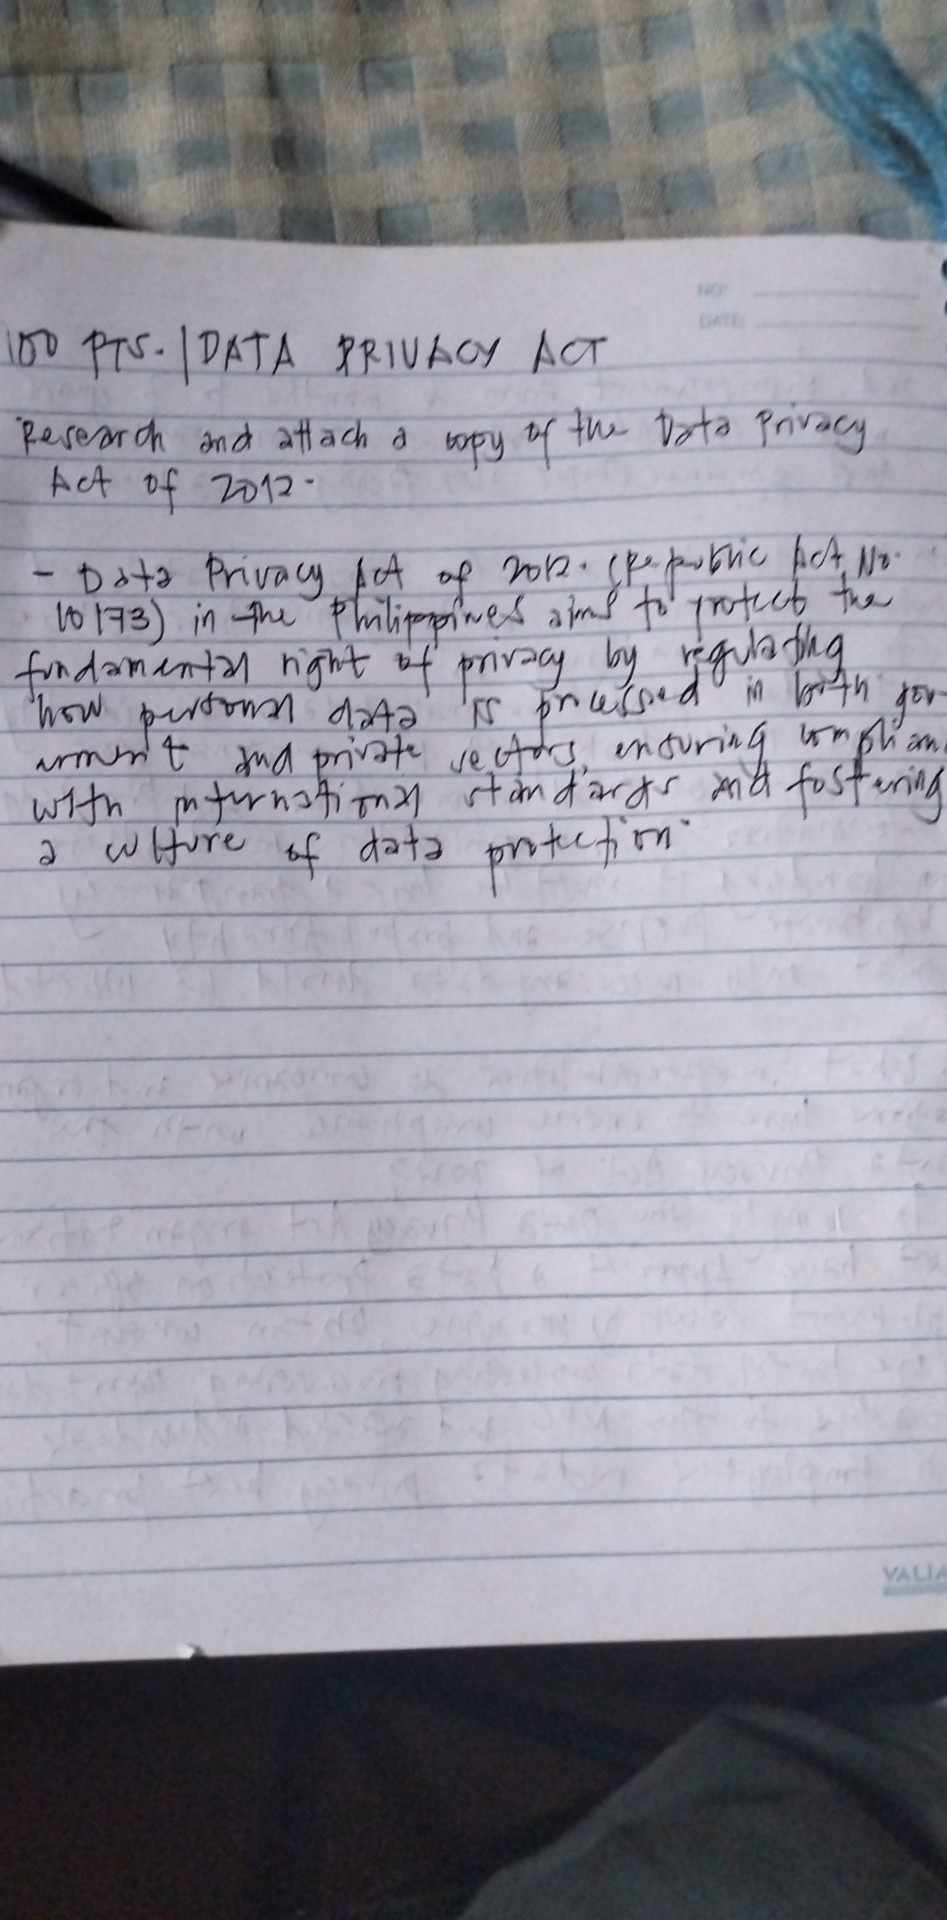 NO:
DATE:
100 PTS. | DATA PRIVACY ACT
Research and attach a copy of the Data Privacy
Act of 2012.
- Data Privacy Act of 2012. (Republic Act No.
10173) in the Philippines aims to protect the
fundamental right of privacy by regulating
how personal data is processed in both gov-
ernment and private sectors, ensuring complian
with international standards and fostering
a culture of data protection.
VALIA